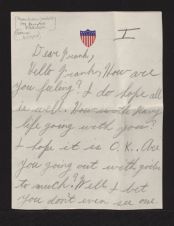 I
Dear Frank,
Hello Frank, How are
you feeling? I do hope all
is well. How is the Navy
life going with you?
I hope it is O.K. Are
you going out with girls
to much? Well I bet
you don't even see one